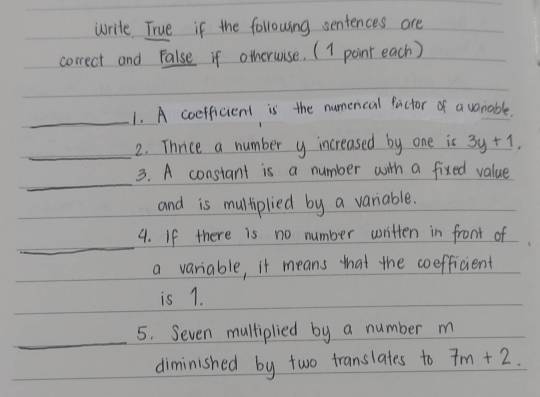 Write True if the following sentences are
correct and False if otherwise. (1 point each)
1. A coefficient is the numerical factor of a variable.
2. Thrice a number y increased by one is 3y + 1.
3. A constant is a number with a fixed value
and is multiplied by a variable.
4. If there is no number written in front of
a variable, it means that the coefficient
is 1.
5. Seven multiplied by a number m
diminished by two translates to 7m + 2.